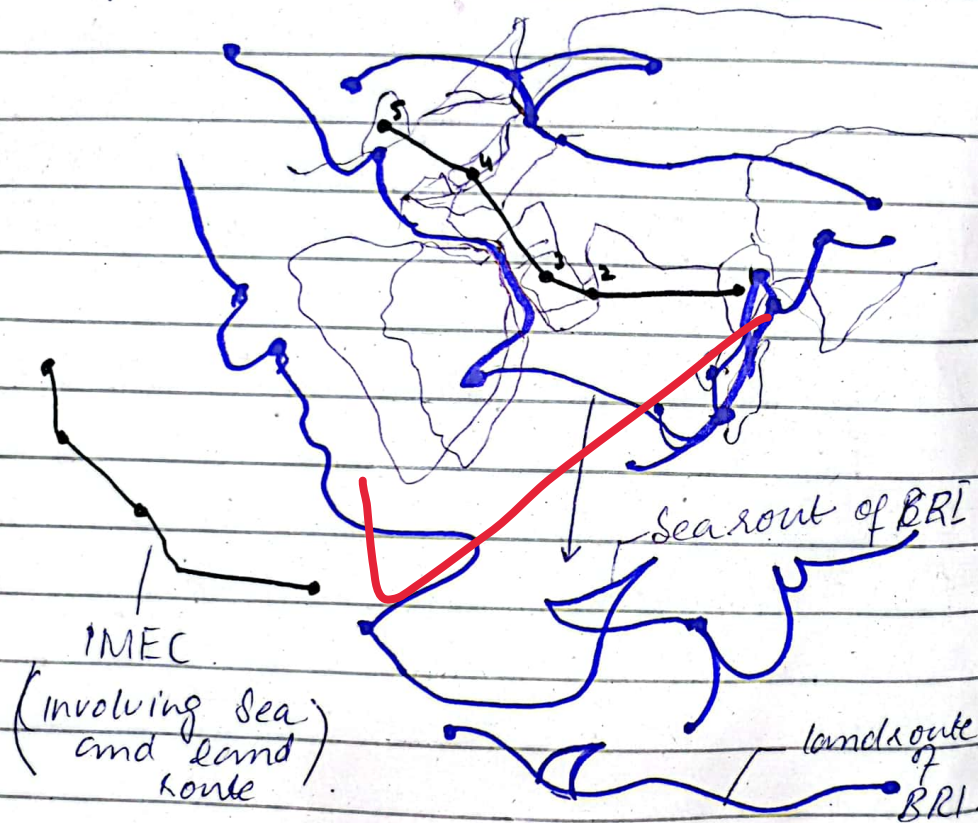 5
4
3
2
Sea rout of BRI
IMEC
(involving Sea
and land
route)
landroute
of
BRI